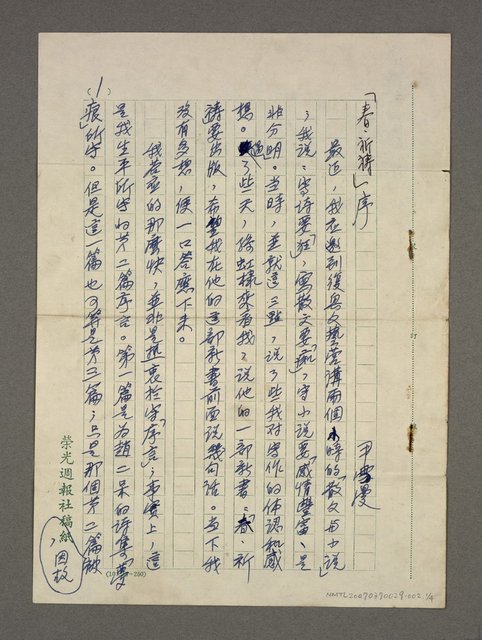 「春．祈禱」序
尹雪曼
最近，我在應到復興文藝營講兩個小時的「散文与小說」
，我說：寫詩要「狂」，寫散文要「痴」，寫小說要「感情豐富、是
非分明」。當時，並就這三點，說了些我對寫作的体認和感
想。過了些天，綠虹樣來看我，說他的一部新書「春．祈
禱」要出版，希望我在他的這部新書前面說幾句話。當下我
沒有多想，便一口答應下來。
我答應的那麼快，並非是熱衷於寫「序言」；事實上，這
是我生平所寫的第二篇序言。第一篇是為趙二呆的詩集「夢
痕」所寫。但是這一篇也可算是第三篇；只是那個第二篇被
，因故
(1)
榮光週報社稿紙
NMTL20070390029-002 1/4